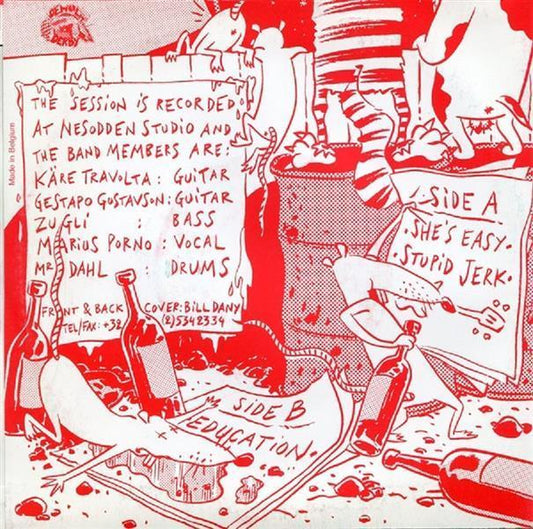 DEMOLITION
DERBY
Made in Belgium
THE SESSION IS RECORDED
AT NESODDEN STUDIO AND
THE BAND MEMBERS ARE:
KÅRE TRAVOLTA: GUITAR
GESTAPO GUSTAVSON: GUITAR
ZUGLI : BASS
MARIUS PORNO: VOCAL
MR DAHL : DRUMS
FRONT & BACK COVER: BILL DANY
TEL/FAX: +32 (2)5342334
SIDE A
SHE'S EASY.
STUPID JERK.
SIDE B
MY EDUCATION.